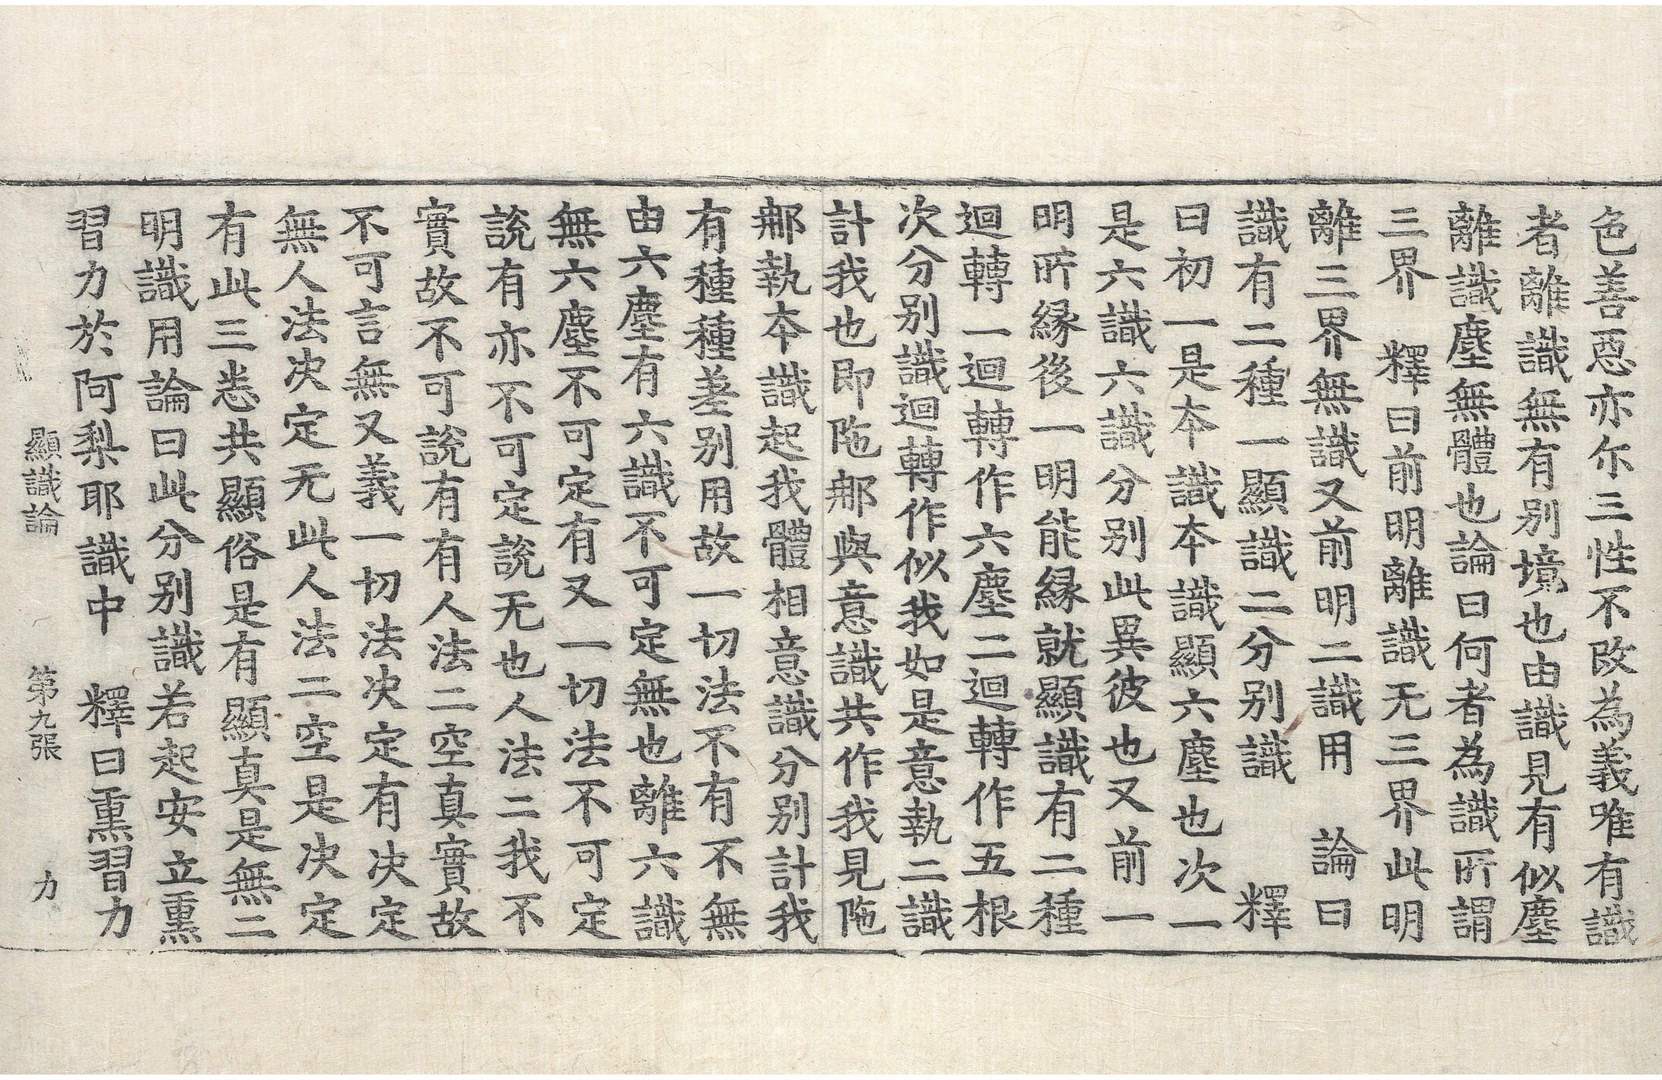 色善惡亦尒三性不改為義唯有識
者離識無有別境也由識見有似塵
離識塵無體也論曰何者為識所謂
三界　釋曰前明離識无三界此明
離三界無識又前明二識用　論曰
識有二種一顯識二分別識　　釋
曰初一是夲識夲識顯六塵也次一
是六識六識分別此異彼也又前一
明所縁後一明能縁就顯識有二種
迴轉一迴轉作六塵二迴轉作五根
次分別識迴轉作似我如是意執二識
計我也即陁郍與意識共作我見陁
郍執夲識起我體相意識分別計我
有種種差別用故一切法不有不無
由六塵有六識不可定無也離六識
無六塵不可定有又一切法不可定
說有亦不可定說无也人法二我不
實故不可說有有人法二空真實故
不可言無又義一切法决定有决定
無人法决定无此人法二空是决定
有此三悉共顯俗是有顯真是無二
明識用論曰此分別識若起安立熏
習力於阿梨耶識中　釋曰熏習力
顯識論　第九張　力